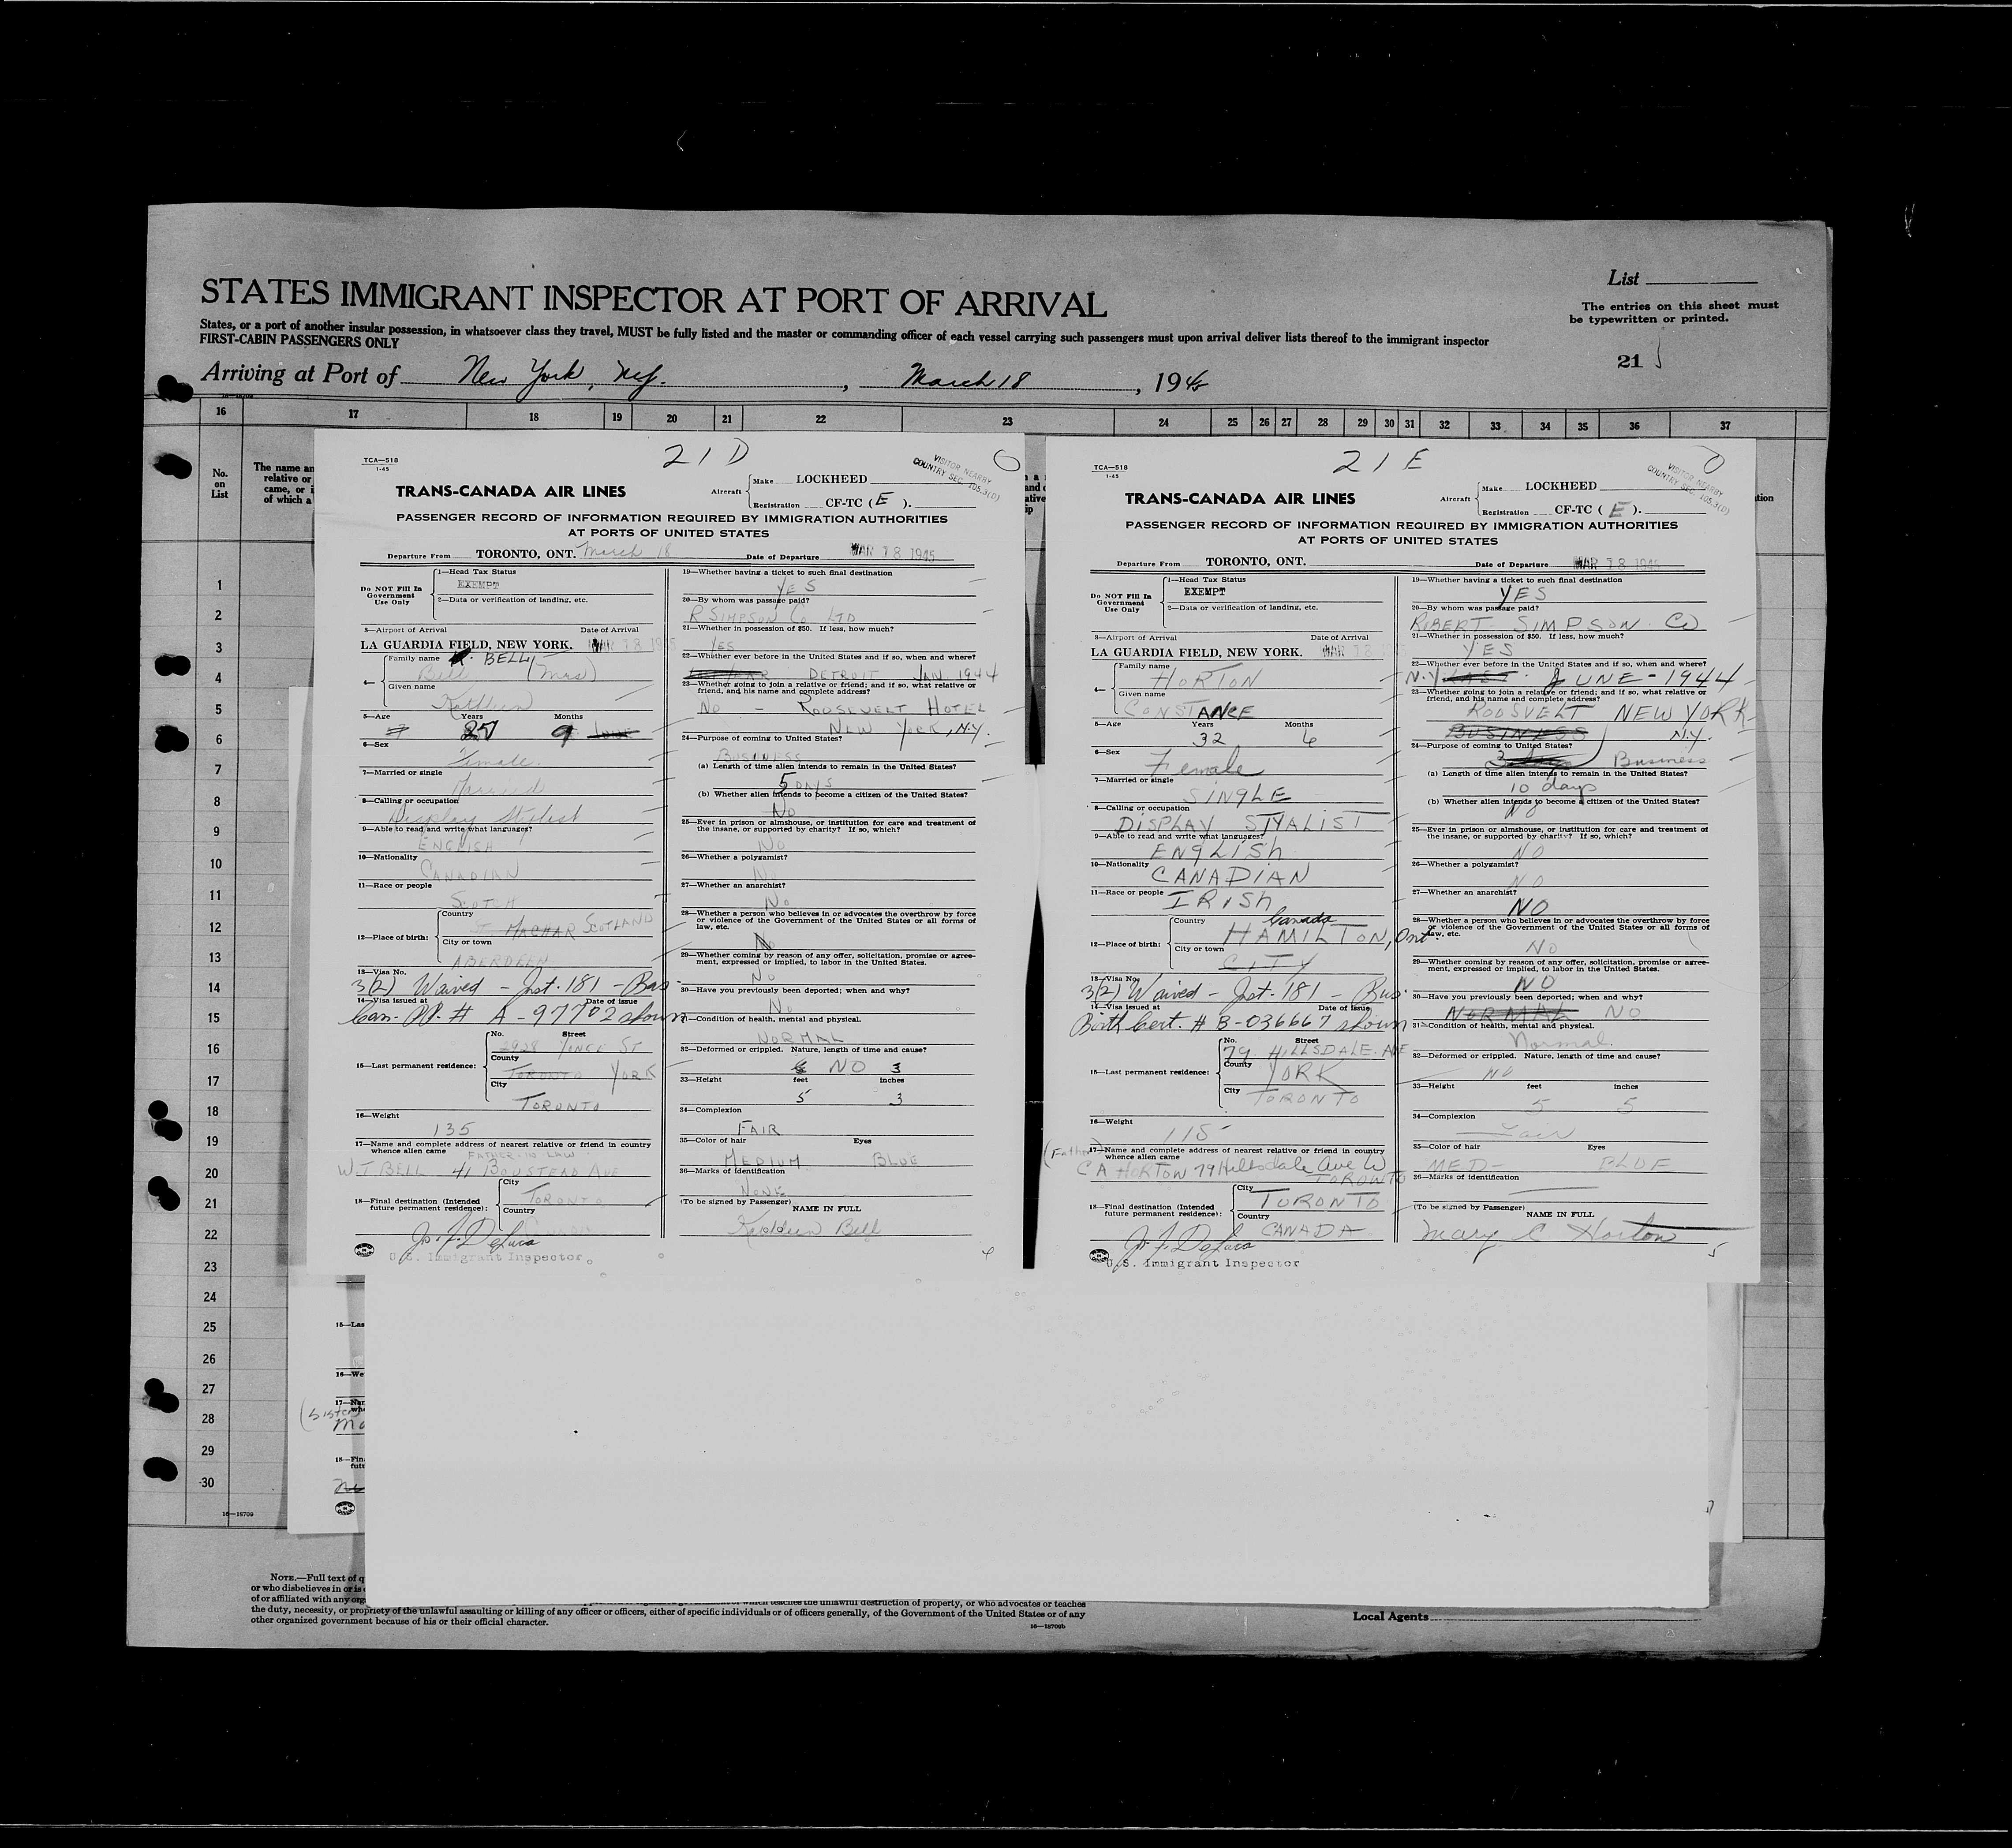 STATES IMMIGRANT INSPECTOR AT PORT OF ARRIVAL
List
The entries on this sheet must
be typewritten or printed.
States, or a port of another insular possession, in whatsoever class they travel, MUST be fully listed and the master or commanding officer of each vessel carrying such passengers must upon arrival deliver lists thereof to the immigrant inspector
FIRST-CABIN PASSENGERS ONLY
21
Arriving at Port of New York, N.Y. , March 18 , 1945
16 17 18 19 20 21 22 23 24 25 26 27 28 29 30 31 32 33 34 35 36 37
No.
on
List
The name an
relative or
came, or i
of which a
1
2
3
4
5
6
7
8
9
10
11
12
13
14
15
16
17
18
19
20
21
22
23
24
25
26
27
28
29
30
21 D
TCA—518
1-45
VISITOR NEARBY
COUNTRY SEC. 105.3(D)
TRANS-CANADA AIR LINES
Aircraft
Make LOCKHEED
Registration CF-TC ( E ).
PASSENGER RECORD OF INFORMATION REQUIRED BY IMMIGRATION AUTHORITIES
AT PORTS OF UNITED STATES
Departure From TORONTO, ONT. March 18 Date of Departure MAR 18 1945
Do NOT Fill In
Government
Use Only
1—Head Tax Status
EXEMPT
2—Data or verification of landing, etc.
3—Airport of Arrival Date of Arrival
LA GUARDIA FIELD, NEW YORK. MAR 18 1945
4—
Family name K. BELL (Mrs)
Bell
Given name
Kathleen
5—Age Years Months
9
6—Sex
Female
7—Married or single
Married
8—Calling or occupation
Display Stylist
9—Able to read and write what languages?
ENGLISH
10—Nationality
CANADIAN
11—Race or people
SCOTCH
12—Place of birth:
Country
ST MACHAR SCOTLAND
City or town
ABERDEEN
13—Visa No.
3(2) Waived - Inst. 181 - Bus
14—Visa issued at Date of issue
Can. PP. # A-97702 shown
15—Last permanent residence:
No. Street
2928 YONGE ST
County
TORONTO YORK
City
TORONTO
16—Weight
135
17—Name and complete address of nearest relative or friend in country
whence alien came FATHER IN LAW
W.J BELL 41 BOUSTEAD AVE
18—Final destination (Intended
future permanent residence):
City
TORONTO
Country
U.S. Immigrant Inspector
19—Whether having a ticket to such final destination
YES
20—By whom was passage paid?
R SIMPSON CO LTD
21—Whether in possession of $50. If less, how much?
YES
22—Whether ever before in the United States and if so, when and where?
DETROIT JAN. 1944
23—Whether going to join a relative or friend; and if so, what relative or
friend, and his name and complete address?
NO - ROOSEVELT HOTEL
NEW YORK, N.Y.
24—Purpose of coming to United States?
BUSINESS
(a) Length of time alien intends to remain in the United States?
5 DAYS
(b) Whether alien intends to become a citizen of the United States?
NO
25—Ever in prison or almshouse, or institution for care and treatment of
the insane, or supported by charity? If so, which?
NO
26—Whether a polygamist?
NO
27—Whether an anarchist?
NO
28—Whether a person who believes in or advocates the overthrow by force
or violence of the Government of the United States or all forms of
law, etc.
NO
29—Whether coming by reason of any offer, solicitation, promise or agree-
ment, expressed or implied, to labor in the United States.
NO
30—Have you previously been deported; when and why?
NO
31—Condition of health, mental and physical.
NORMAL
32—Deformed or crippled. Nature, length of time and cause?
NO 3
33—Height feet inches
5 3
34—Complexion
FAIR
35—Color of hair Eyes
MEDIUM BLUE
36—Marks of identification
NONE
(To be signed by Passenger)
NAME IN FULL
Kathleen Bell
21 E
TCA—518
1-45
VISITOR NEARBY
COUNTRY SEC. 105.3(D)
TRANS-CANADA AIR LINES
Aircraft
Make LOCKHEED
Registration CF-TC ( E ).
PASSENGER RECORD OF INFORMATION REQUIRED BY IMMIGRATION AUTHORITIES
AT PORTS OF UNITED STATES
Departure From TORONTO, ONT. Date of Departure MAR 18 1945
Do NOT Fill In
Government
Use Only
1—Head Tax Status
EXEMPT
2—Data or verification of landing, etc.
3—Airport of Arrival Date of Arrival
LA GUARDIA FIELD, NEW YORK. MAR 18 1945
4—
Family name
HORTON
Given name
CONSTANCE
5—Age Years Months
32 6
6—Sex
Female
7—Married or single
SINGLE
8—Calling or occupation
DISPLAY STYALIST
9—Able to read and write what languages?
ENGLISH
10—Nationality
CANADIAN
11—Race or people
IRISH
12—Place of birth:
Country Canada
HAMILTON, Ont.
City or town
CITY
13—Visa No.
3(2) Waived - Inst. 181 - Bus.
14—Visa issued at Date of issue
Birth Cert. # B-036667 shown
15—Last permanent residence:
No. Street
79 HILLSDALE. AVE
County
YORK
City
TORONTO
16—Weight
115
(Father)
17—Name and complete address of nearest relative or friend in country
whence alien came
C A HORTON 79 Hillsdale Ave W
TORONTO
18—Final destination (Intended
future permanent residence):
City
TORONTO
Country
CANADA
U.S. Immigrant Inspector
19—Whether having a ticket to such final destination
YES
20—By whom was passage paid?
ROBERT SIMPSON CO
21—Whether in possession of $50. If less, how much?
YES
22—Whether ever before in the United States and if so, when and where?
N.Y. LAST JUNE-1944
23—Whether going to join a relative or friend; and if so, what relative or
friend, and his name and complete address?
ROOSVELT NEW YORK
BUSINESS N.Y.
24—Purpose of coming to United States?
3 days Business
(a) Length of time alien intends to remain in the United States?
10 days
(b) Whether alien intends to become a citizen of the United States?
NO
25—Ever in prison or almshouse, or institution for care and treatment of
the insane, or supported by charity? If so, which?
NO
26—Whether a polygamist?
NO
27—Whether an anarchist?
NO
28—Whether a person who believes in or advocates the overthrow by force
or violence of the Government of the United States or all forms of
law, etc.
NO
29—Whether coming by reason of any offer, solicitation, promise or agree-
ment, expressed or implied, to labor in the United States.
NO
30—Have you previously been deported; when and why?
NORMAL NO
31—Condition of health, mental and physical.
Normal
32—Deformed or crippled. Nature, length of time and cause?
NO
33—Height feet inches
5 5
34—Complexion
Fair
35—Color of hair Eyes
MED- BLUE
36—Marks of identification
(To be signed by Passenger)
NAME IN FULL
Mary C Horton
5
15—Las
16—We
17—Nam
whe
(Sister
18—Fin
futu
16—18709
NOTE.—Full text of q
or who disbelieves in or is
of or affiliated with any org which teaches the unlawful destruction of property, or who advocates or teaches
the duty, necessity, or propriety of the unlawful assaulting or killing of any officer or officers, either of specific individuals or of officers generally, of the Government of the United States or of any
other organized government because of his or their official character.
16—18709b
Local Agents